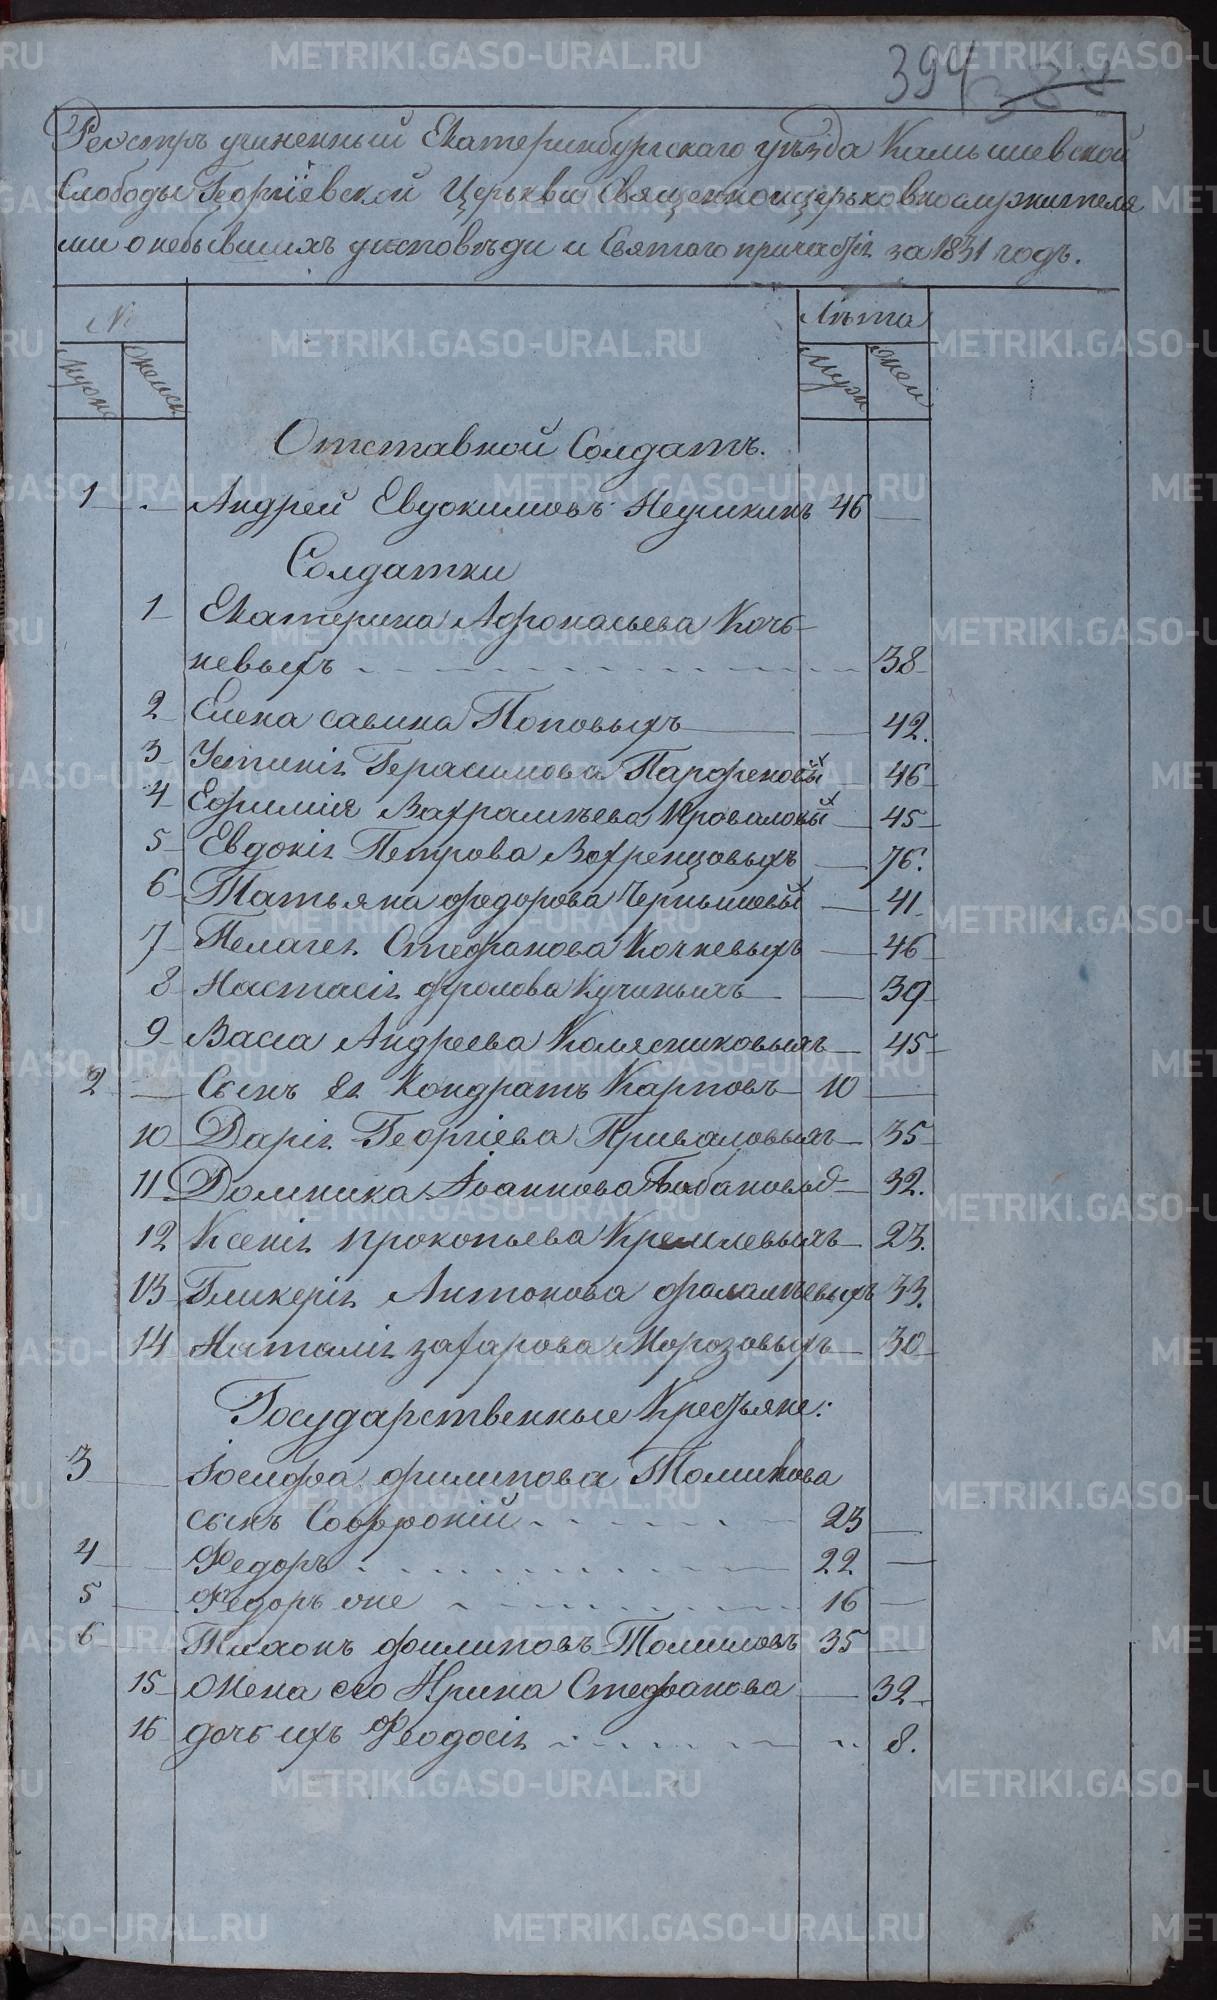 394 388
Реэстръ учиненный Екатеринбургскаго уѣзда Камышевской
Слободы Георгіевской Церькви Священноицерьковнослужителя
ми о небывшихъ уисповѣди и Святаго причастія за 1831 годъ.
№ Лѣта
Мужс Женск Муж Жен
Отставной Солдатъ.
1 Андрей Евдокимовъ 46
Солдатки
1 Екатерина Афонасьева Коч
невыхъ 38
2 Елена савина Поповыхъ 42.
3 Устинія Герасимова Парфеновых 46
4 Ефимія Вахрамѣева 45
5 Евдокія Петрова 76.
6 Татьяна федорова Чернышовых 41
7 Пелагея Стефанова Кочневыхъ 46
8 Настасія фролова Кучиныхъ 39
9 Васса Андреева Колясниковыхъ 45
2 Сынъ Ея Кондратъ Карповъ 10
10 Дарія Георгіева Приваловыхъ 35
11 Домника Іоаннова Бабановых 32.
12 Ксенія прокопьева Кремлевыхъ 23.
13 Гликерія Антонова фаламѣевыхъ 33.
14 Наталія захарова Морозовыхъ 30
Государственные Крестьяне:
3 Іосифа филипова Томилова
сынъ Софроній 23
4 Федоръ 22
5 Федоръ же 16
6 филиповъ Томиловъ 35
15 Жена его Ирина Стефанова 32
16 дочь ихъ Феодосія 8.
METRIKI.GASO-URAL.RU